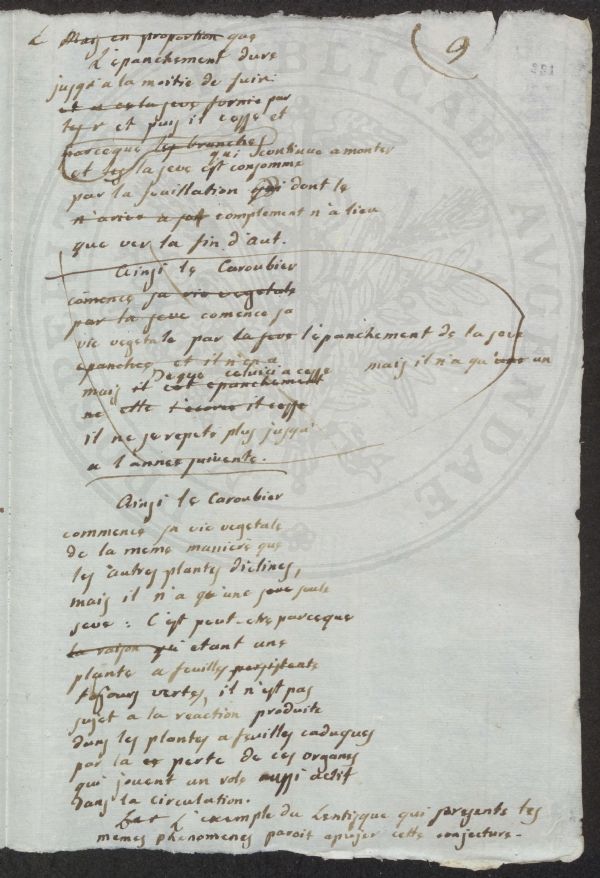 9
L Mais en proportion que
L'epanchement dure
jusqu'a la moitie de juin.
et a cette seve fornie par
et puis il cesse et
parceque les branches
qui continue a monter
et la seve est consomme
par la feuillation qui dont le
complement n'a lieu
que ver la fin d'aut.
Ainsi le Caroubier
comence sa vie vegetale
par la seve comence sa
vie vegetale par la seve l'epanchement de la seve
epanchee et il n'en a mais il n'a qu'une un
Deque celuici a cesse
mais il est epanchement
ne il cesse
il ne se repete plus jusqu'
a l'annee suivente.
Ainsi le Caroubier
commence sa vie vegetale
de la meme maniere que
les autres plantes diclines,
mais il n'a qu'une seve seule
seve : C'est peut-etre parceque
la raison qu'etant une
plante a feuilles persistente
tojours vertes, il n'est pas
sujet a la reaction produite
dans les plantes a feuilles caduques
par la perte de ces organes
qui jouent un role aussi actif
dans la circulation.
L'exemple du Lentisque qui presente les
memes phenomenes paroit apujer cette conjecture.